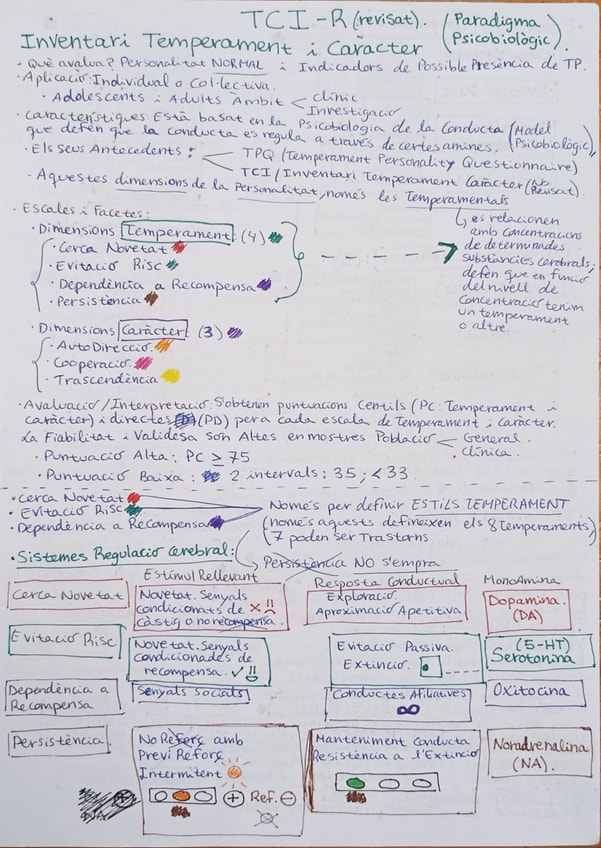 TCI-R (revisat). (Paradigma Psicobiològic).
Inventari Temperament i Caràcter
· Què avalua? Personalitat NORMAL i Indicadors de Possible Presència de TP.
· Aplicació: Individual o Col·lectiva.
· Adolescents i Adults Àmbit < clínic
Investigació
· Característiques: Està basat en la Psicobiologia de la Conducta (Model Psicobiològic),
que defèn que la conducta es regula a través de certes amines.
· Els seus Antecedents: TPQ (Temperament Personality Questionnaire)
TCI/Inventari Temperament Caràcter (No Revisat).
· Aquestes dimensions de la Personalitat, només les Temperamentals
es relacionen
amb concentracions
de determinades
substàncies cerebrals;
defèn que en funció
del nivell de
concentració tenim
un temperament
o altre.
· Escales i Facetes:
· Dimensions Temperament: (4)
· Cerca Novetat
· Evitació Risc
· Dependència a Recompensa
· Persistència
· Dimensions Caràcter (3)
· AutoDirecció.
· Cooperació
· Trascendència
· Avaluació/Interpretació: S'obtenen puntuacions Centils (PC: Temperament i
caràcter) i directes (PD) per a cada escala de Temperament i Caràcter.
La Fiabilitat i Validesa són Altes en mostres Població < General.
clínica.
· Puntuació Alta: PC ≥ 75
· Puntuació Baixa: 2 intervals: 35; <33
· Cerca Novetat
· Evitació Risc
· Dependència a Recompensa
Només per definir ESTILS TEMPERAMENT
(només aquests defineixen els 8 Temperaments)
7 poden ser Trastorns
Persistència NO s'empra
· Sistemes Regulació Cerebral:
Estímul Rellevant
Resposta Conductual
MonoAmina
Cerca Novetat
Novetat. Senyals
condicionats de
Càstig o no recompensa.
Exploració.
Aproximació Apetitiva
Dopamina.
(DA)
Evitació Risc
Novetat. Senyals
condicionades de
recompensa.
Evitació Passiva.
Extinció.
(5-HT)
Serotonina
Dependència a
Recompensa
Senyals Socials
Conductes Afiliatives
∞
Oxitocina
Persistència
No Reforç amb
Previ Reforç
Intermitent
+ Ref. -
Manteniment Conducta
Resistència a l'Extinció
Noradrenalina
(NA).